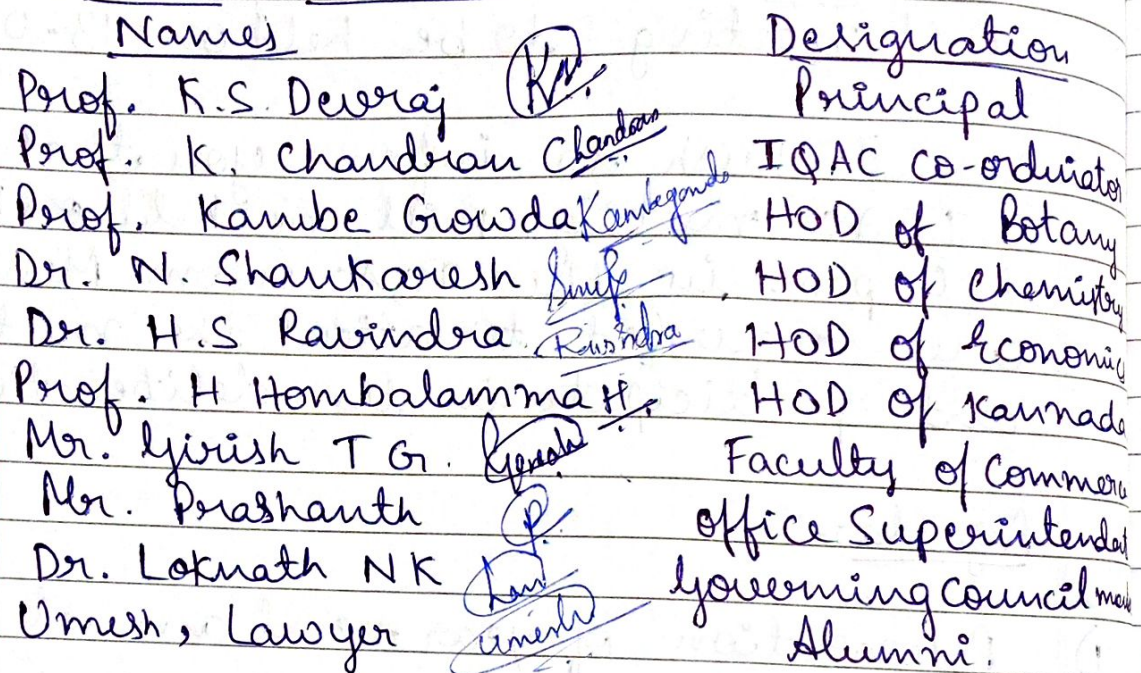 Names Designation
Prof. K.S. Devraj Principal
Prof. K. Chandran Chandran IQAC Co-ordinator
Prof. Kambe Gowda Kambegowda HOD of Botany
Dr. N. Shankaresh HOD of Chemistry
Dr. H.S Ravindra Ravindra HOD of Economic
Prof. H Hombalamma H. HOD of Kannada
Mr. Girish T G. Faculty of Commerc
Mr. Prashanth P. Office Superintendat
Dr. Loknath NK Governing Council
Umesh, Lawyer Umesh Alumni.